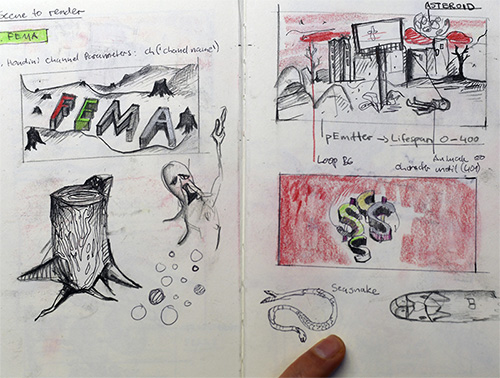 Scene to render
. FEMA
. Houdini Channel Parameters: ch("chanel name")
FEMA
ASTEROID
pEmitter → Lifespan 0-400
Loop BG
character until (401)
SSS
Seasnake
B